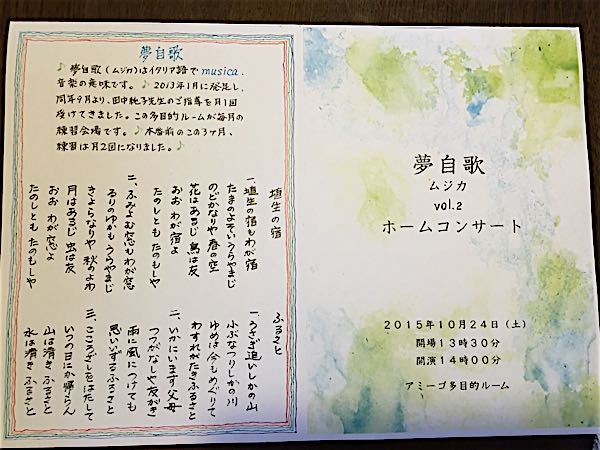 夢自歌
♪夢自歌（ムジカ）はイタリア語でmusica、
音楽の意味です。♪2013年1月に発足し、
同年9月より、田中純子先生のご指導を月1回
受けてきました。この多目的ルームが毎月の
練習会場です。♪本番前のこの3ヶ月、
練習は月2回になりました。♪
埴生の宿
一、埴生の宿もわが宿
たまのよそいうらやまじ
のどかなりや春の空
花はあるじ鳥は友
おおわが宿よ
たのしともたのもしや
二、ふみよむ窓もわが窓
るりのゆかもうらやまじ
きよらなりや秋のよわ
月はあるじ虫は友
おおわが窓よ
たのしともたのもしや
ふるさと
一、うさぎ追いしかの山
小ぶなつりしかの川
ゆめは今もめぐりて
わすれがたきふるさと
二、いかにいます父母
つつがなしや友がき
雨に風につけても
思いいずるふるさと
三、こころざしをはたして
いつの日にか帰らん
山は清きふるさと
水は清きふるさと
夢自歌
ムジカ
vol.2
ホームコンサート
2015年10月24日（土）
開場13時30分
開演14時00分
アミーゴ多目的ルーム